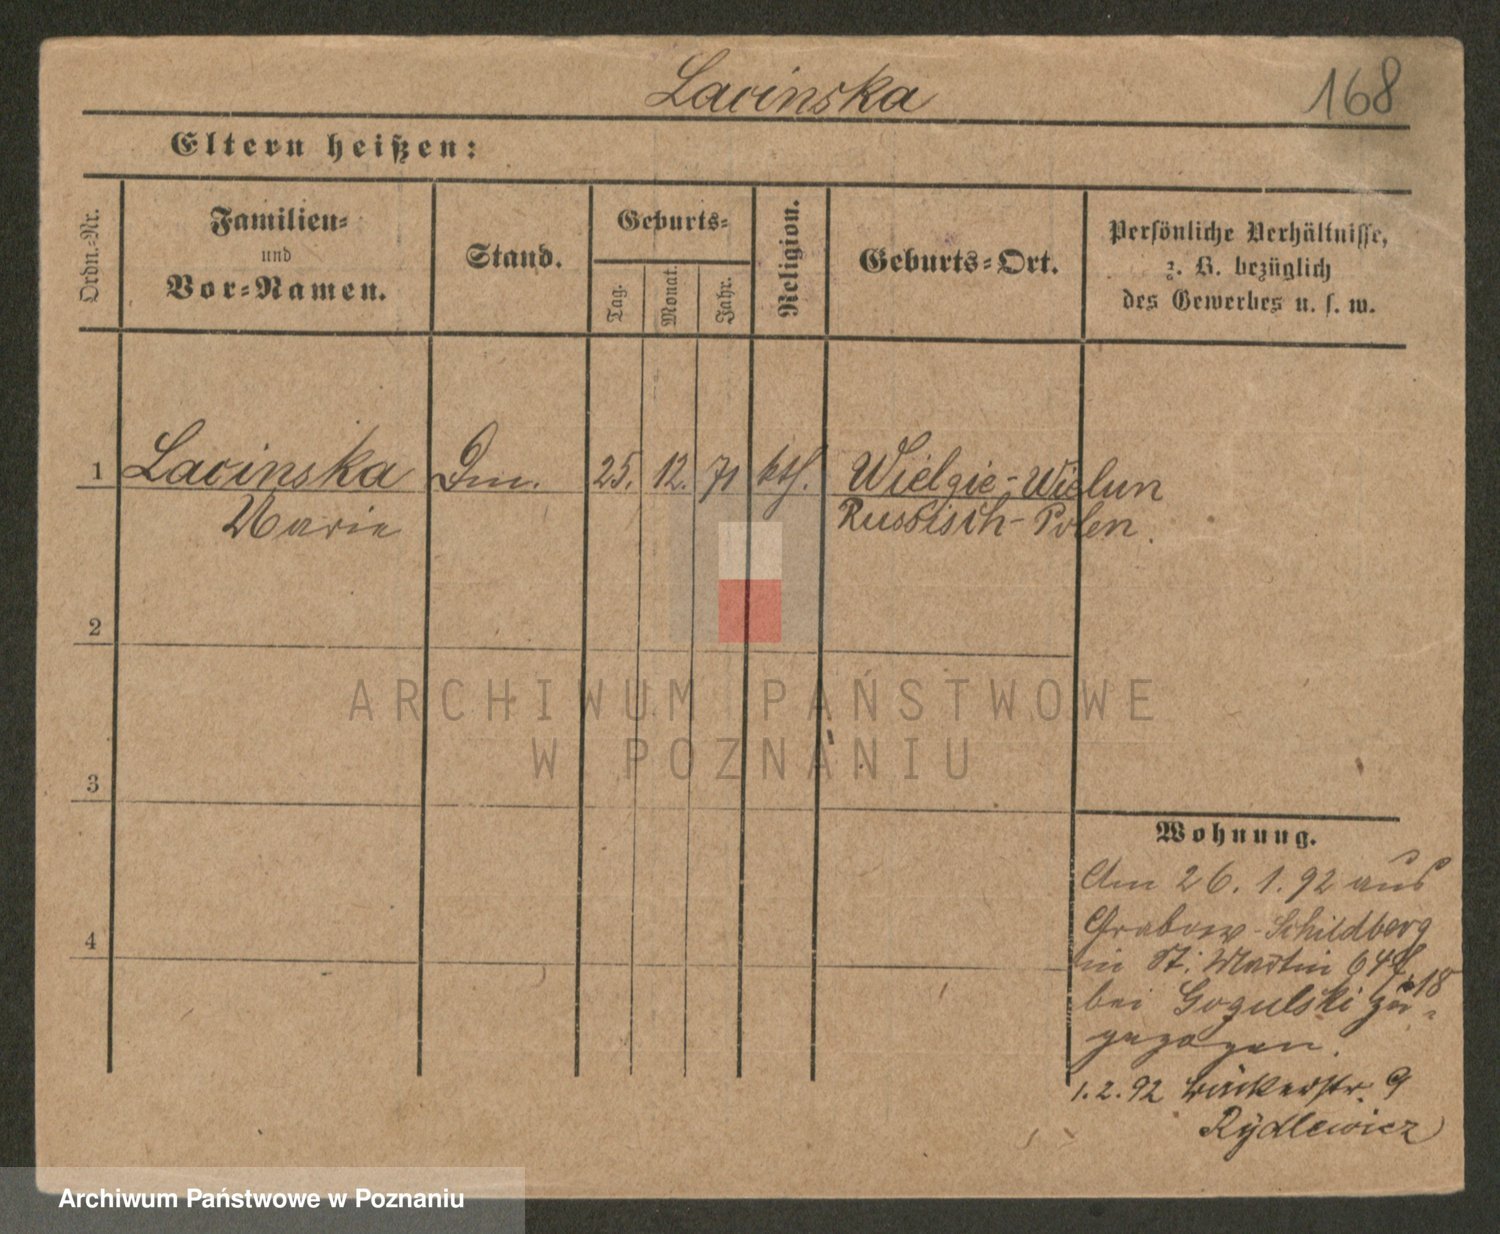 Lacinska
168
Eltern heißen:
Ordn.=Nr.
Familien=
und
Vor=Namen.
Stand.
Geburts=
Tag.
Monat.
Jahr.
Religion.
Geburts=Ort.
Persönliche Verhältnisse,
z. B. bezüglich
des Gewerbes u. s. w.
1 Lacinska 25. 12. 71 kth. Wielgie-Wielun
Marie Russisch-Polen.
2
3
4
Wohnung.
Am 26. 1. 92 aus
Grabow-Schildberg
in St. Martin 64
18
bei Gogulski zu=
gezogen.
1. 2. 92 Bäckerstr. 9
Rydlewicz
ARCHIWUM PAŃSTWOWE
W POZNANIU
Archiwum Państwowe w Poznaniu